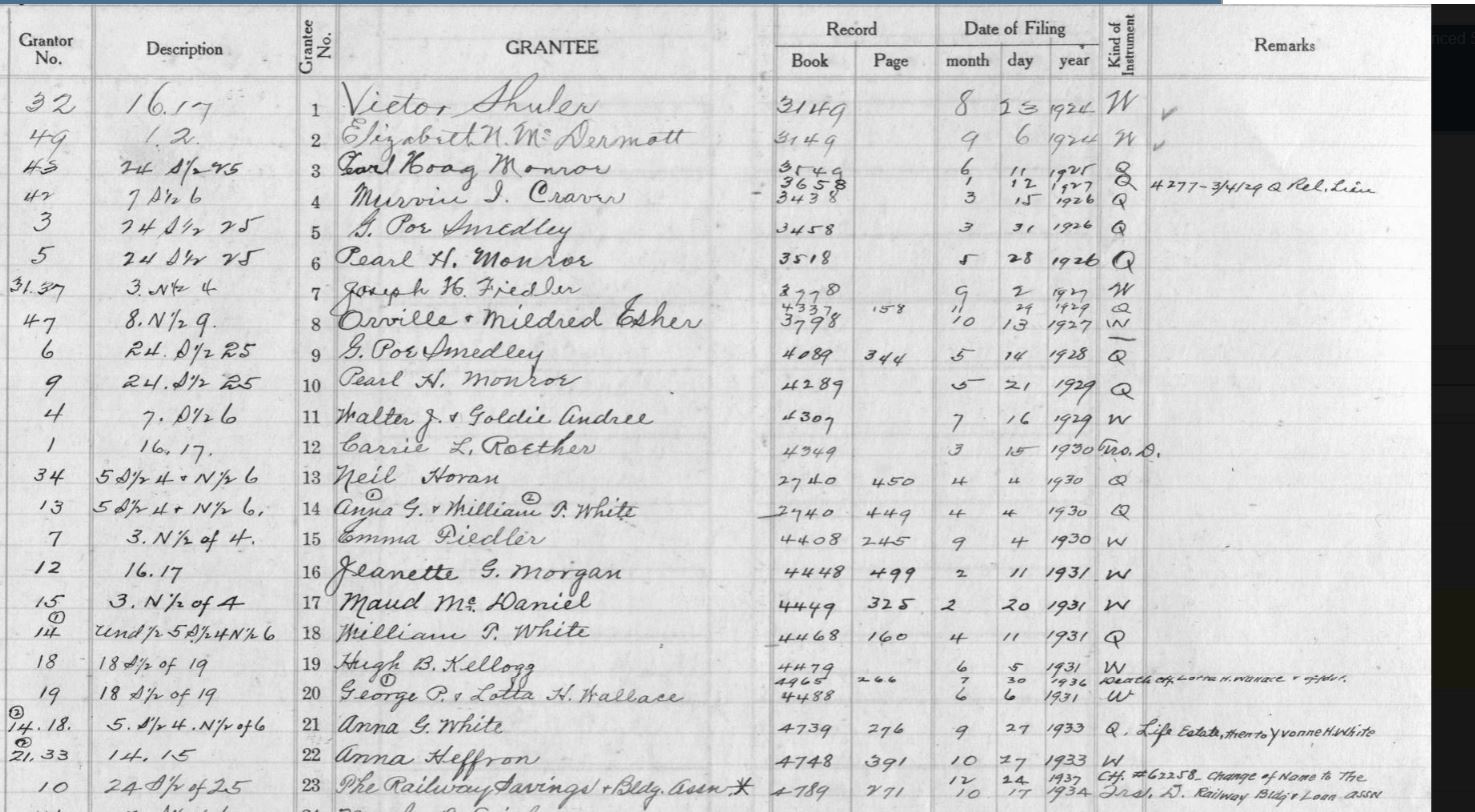 Grantor No. Description Grantee No. GRANTEE Record Book Page Date of Filing month day year Kind of Instrument Remarks
32 16.17 1 Victor Shuler 3149 8 23 1924 W ✓
49 1.2. 2 Elizabeth N. Mc Dermott 3149 9 6 1924 W ✓
43 24 S½ 25 3 Earl Hoag Monroe 3549 6 11 1925 Q
3658 1 12 1927 Q 4277-3/4/29 Q Rel. Lien
42 7 S½ 6 4 Murvin I. Craver 3438 3 15 1926 Q
3 24 S½ 25 5 G. Poe Smedley 3458 3 31 1926 Q
5 24 S½ 25 6 Pearl H. Monroe 3518 5 28 1926 Q
31.37 3. N½ 4 7 Joseph H. Fiedler 3778 9 2 1927 W
4337 158 11 29 1929 Q
47 8. N½ 9. 8 Orville & Mildred Esher 3798 10 13 1927 W
6 24. S½ 25 9 G. Poe Smedley 4089 344 5 14 1928 Q
9 24. S½ 25 10 Pearl H. Monroe 4289 5 21 1929 Q
4 7. S½ 6 11 Walter J. & Goldie Andree 4307 7 16 1929 W
1 16, 17. 12 Carrie L. Roether 4349 3 15 1930 D.
34 5 S½ 4 & N½ 6 13 Neil Horan 2740 450 4 4 1930 Q
13 5 S½ 4 & N½ 6. 14 Anna G. & William T. White 2740 449 4 4 1930 Q
7 3. N½ of 4. 15 Emma Fiedler 4408 245 9 4 1930 W
12 16.17 16 Jeanette G. Morgan 4448 499 2 11 1931 W
15 3. N½ of 4 17 Maud Mc Daniel 4449 325 2 20 1931 W
14 Und ½ 5 S½ 4 N½ 6 18 William T. White 4468 160 4 11 1931 Q
18 18 S½ of 19 19 Hugh B. Kellogg 4479 6 5 1931 W
4965 266 7 30 1936 Death of Lotta H. Wallace
19 18 S½ of 19 20 George P. & Lotta H. Wallace 4488 6 6 1931 W
14. 18. 5. S½ 4. N½ of 6 21 Anna G. White 4739 276 9 27 1933 Q. Life Estate, then to Yvonne H. White
21. 33 14. 15 22 Anna Heffron 4748 391 10 27 1933 W
12 24 1937 #62258 Change of Name to The
10 24 S½ of 25 23 The Railway Savings & Bldg. Assn * 4789 271 10 17 1934 D. Railway Bldg & Loan Assn